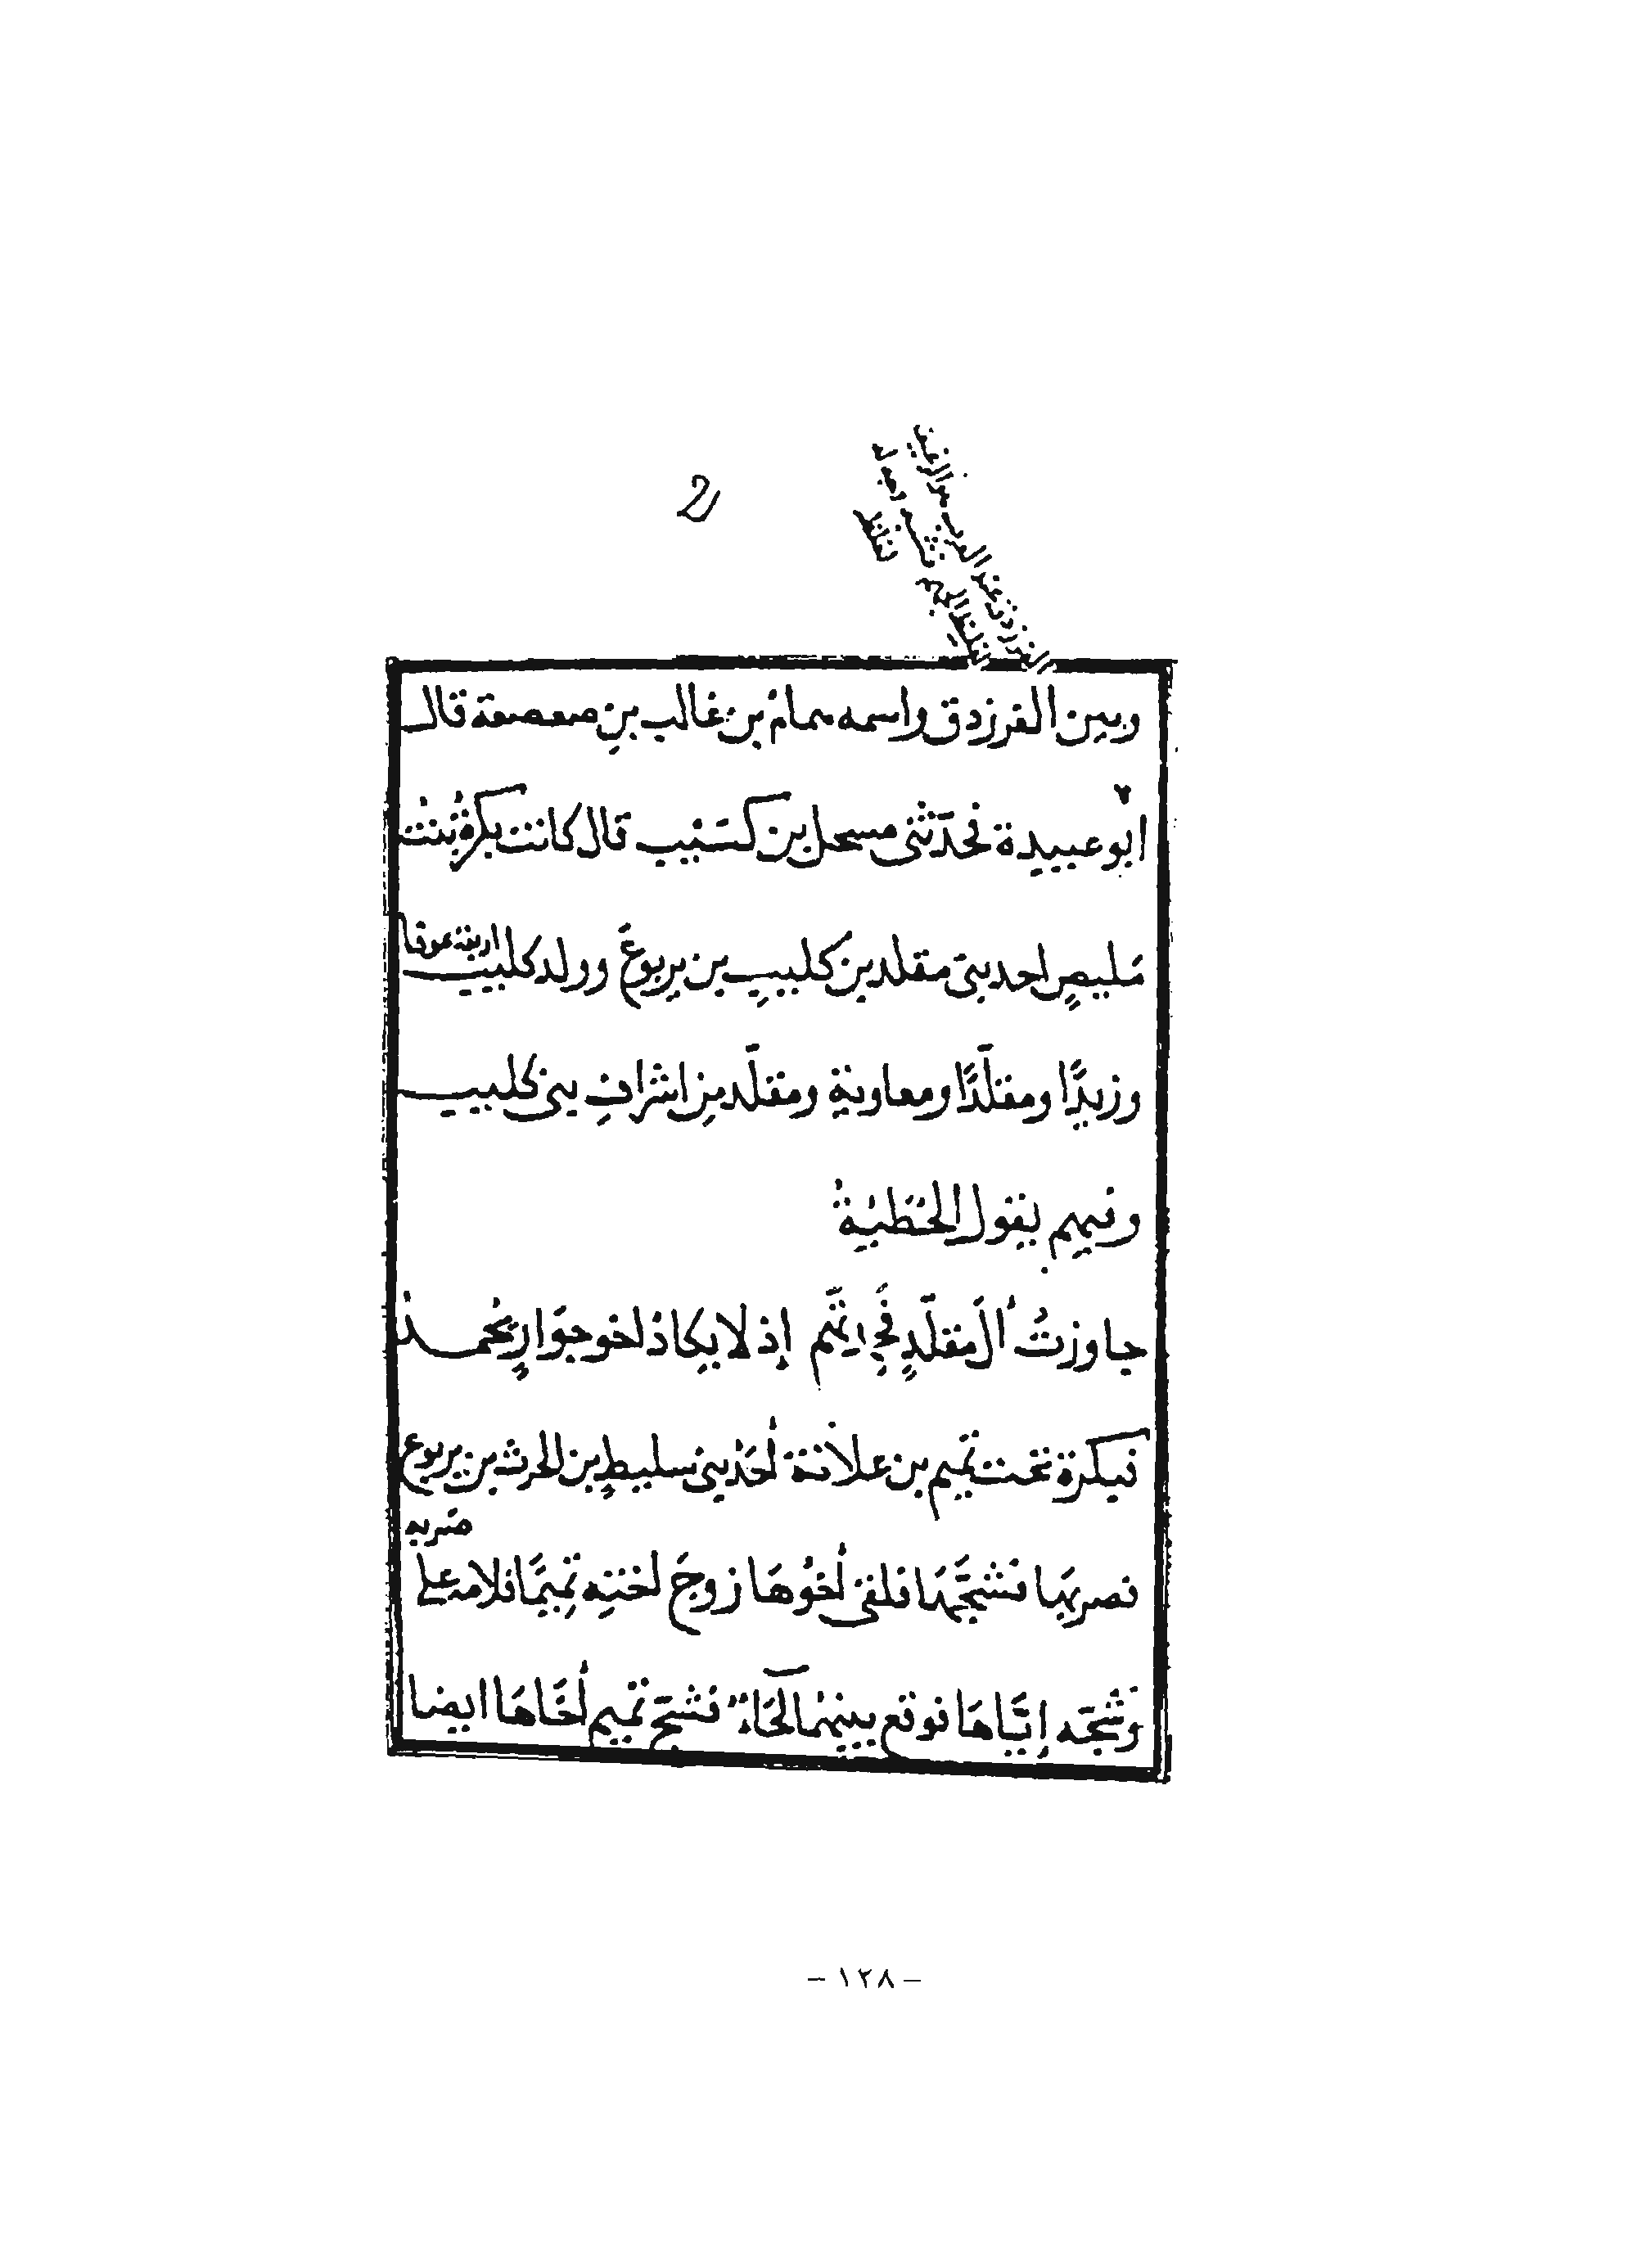 الفرزدق عند العرب
الغليظ
وبين الفرزدق واسمه همام بن غالب بن صعصعة قال
ابو عبيدة فحدّثنى مسحل بن كسيب قال كانت بكرة بنت
مليص احد بنى مقلد بن كليب بن يربوع وولد كليب اربعة عوفا
وزيدًا ومقلّدًا ومعاوية ومقلّد من اشراف بنى كليب
وفيهم يقول الحُطَيئةُ
جاوزتُ آل مقلّدٍ إذ لا يكادُ أخو جوارٍ يُحمدُ
فبكرة تحت تميم بن علاثة أحد بنى سليط بن الحرث بن يربوع
فضربها فشجّها فلقى أخوها زوجَ أخته تميمًا فلامه على ضربه
وشجّه إيّاها فوقع بينهما لحاء فشجّ تميم أخاها ايضا
– ١٢٨ –